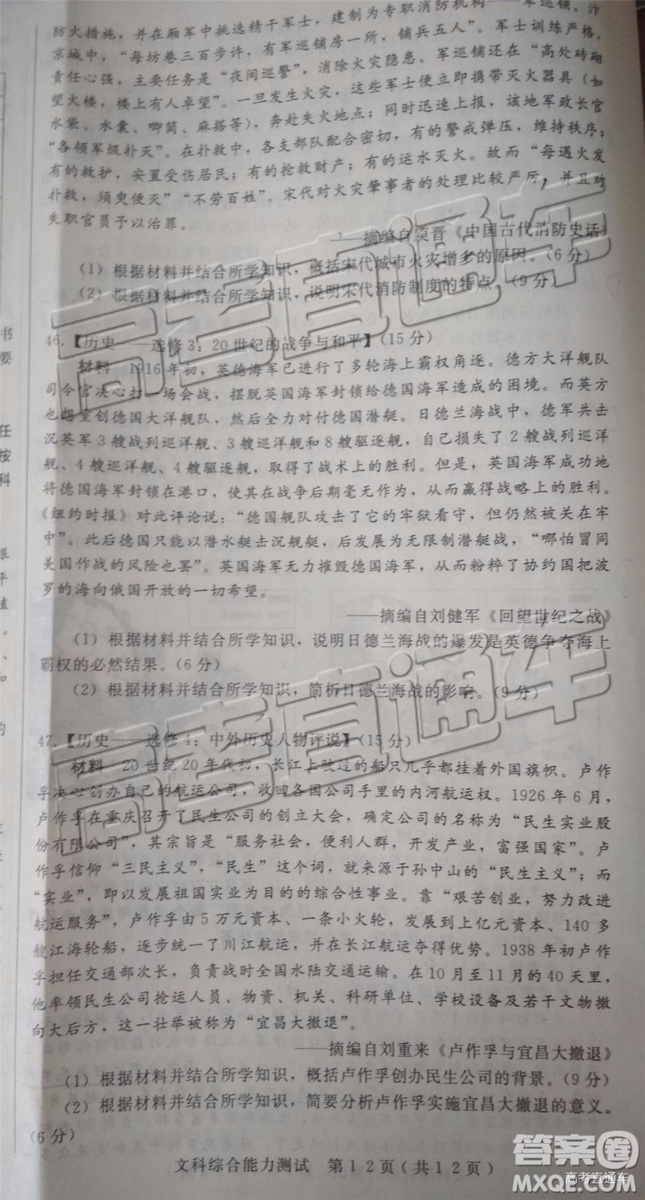 防火措施，并在厢军中挑选精干军士，建制为专职消防机构——军巡铺。汴
京城中，“每坊巷三百步许，有军巡铺房一所，铺兵五人”。军士训练严格，
责任心强，主要任务是“夜间巡警”，消除火灾隐患。军巡铺还在“高处砖砌
望火楼，楼上有人卓望”。一旦发生火灾，这些军士便立即携带灭火器具（如
水袋、水囊、唧筒、麻搭等），奔赴失火地点；同时迅速上报，该地军政长官
“各领军级扑灭”。在扑救中，各支部队配合密切，有的警戒弹压，维持秩序；
有的救护，安置受伤居民；有的抢救财产；有的运水灭火。故而“每遇火发
扑救，须臾便灭”“不劳百姓”。宋代对火灾肇事者的处理比较严厉，并且对
失职官员予以治罪。
——摘编自 晋《中国古代消防史话》
（1）根据材料并结合所学知识，概括宋代城市火灾增多的原因。（6分）
（2）根据材料并结合所学知识，说明宋代消防制度的特点。（9分）
46.【历史——选修3：20世纪的战争与和平】（15分）
材料 1916年初，英德海军已进行了多轮海上霸权角逐。德方大洋舰队
司令官决心封 一场会战，摆脱英国海军封锁给德国海军造成的困境。而英方
也 望创德国大洋舰队，然后全力对付德国潜艇。日德兰海战中，德军共击
沉英军3艘战列巡洋舰、3艘巡洋舰和8艘驱逐舰，自己损失了2艘战列巡洋
舰、4艘巡洋舰、4艘驱逐舰，取得了战术上的胜利。但是，英国海军成功地
将德国海军封锁在港口，使其在战争后期毫无作为，从而赢得战略上的胜利。
《纽约时报》对此评论说：“德国舰队攻击了它的牢狱看守，但仍然被关在牢
中”。此后德国只能以潜水艇去击沉商船，后发展为无限制潜艇战，“哪怕冒同
美国作战的风险也罢”。英国海军无力摧毁德国海军，粉碎了协约国把波
罗的海向俄国开放的一切希望。
——摘编自刘健军《回望世纪之战》
（1）根据材料并结合所学知识，说明日德兰海战的爆发是英德争夺海上
霸权的必然结果。（6分）
（2）根据材料并结合所学知识，简析日德兰海战的影响。（9分）
47.【历史——选修4：中外历史人物评说】（15分）
材料 20世纪20年代初，长江上驶过的船只几乎都挂着外国旗帜。卢作
孚决心创办自己的航运公司，收回各国公司手里的内河航运权。1926年6月，
卢作孚在重庆召开了民生公司的创立大会，确定公司的名称为“民生实业股
份有限公司”，其宗旨是“服务社会，便利人群，开发产业，富强国家”。卢
作孚信仰“三民主义”，“民生”这个词，就来源于孙中山的“民生主义”；而
“实业”，即以发展祖国实业为目的的综合性事业。靠“艰苦创业，努力改进
航运服务”，卢作孚由5万元资本、一条小火轮，发展到上亿元资本、140多
艘江海轮船，逐步统一了川江航运，并在长江航运夺得优势。1938年初卢作
孚担任交通部次长，负责战时全国水陆交通运输。在10月至11月的40天里，
他率领民生公司抢运人员、物资、机关、科研单位、学校设备及若干文物撤
向大后方，这一壮举被称为“宜昌大撤退”。
——摘编自刘重来《卢作孚与宜昌大撤退》
（1）根据材料并结合所学知识，概括卢作孚创办民生公司的背景。（9分）
（2）根据材料并结合所学知识，简要分析卢作孚实施宜昌大撤退的意义。
（6分）
文科综合能力测试 第12页（共12页）
高考直通车
高考直通车
答案圈
高考直通车
MXQE.COM
书
要
任
按
科